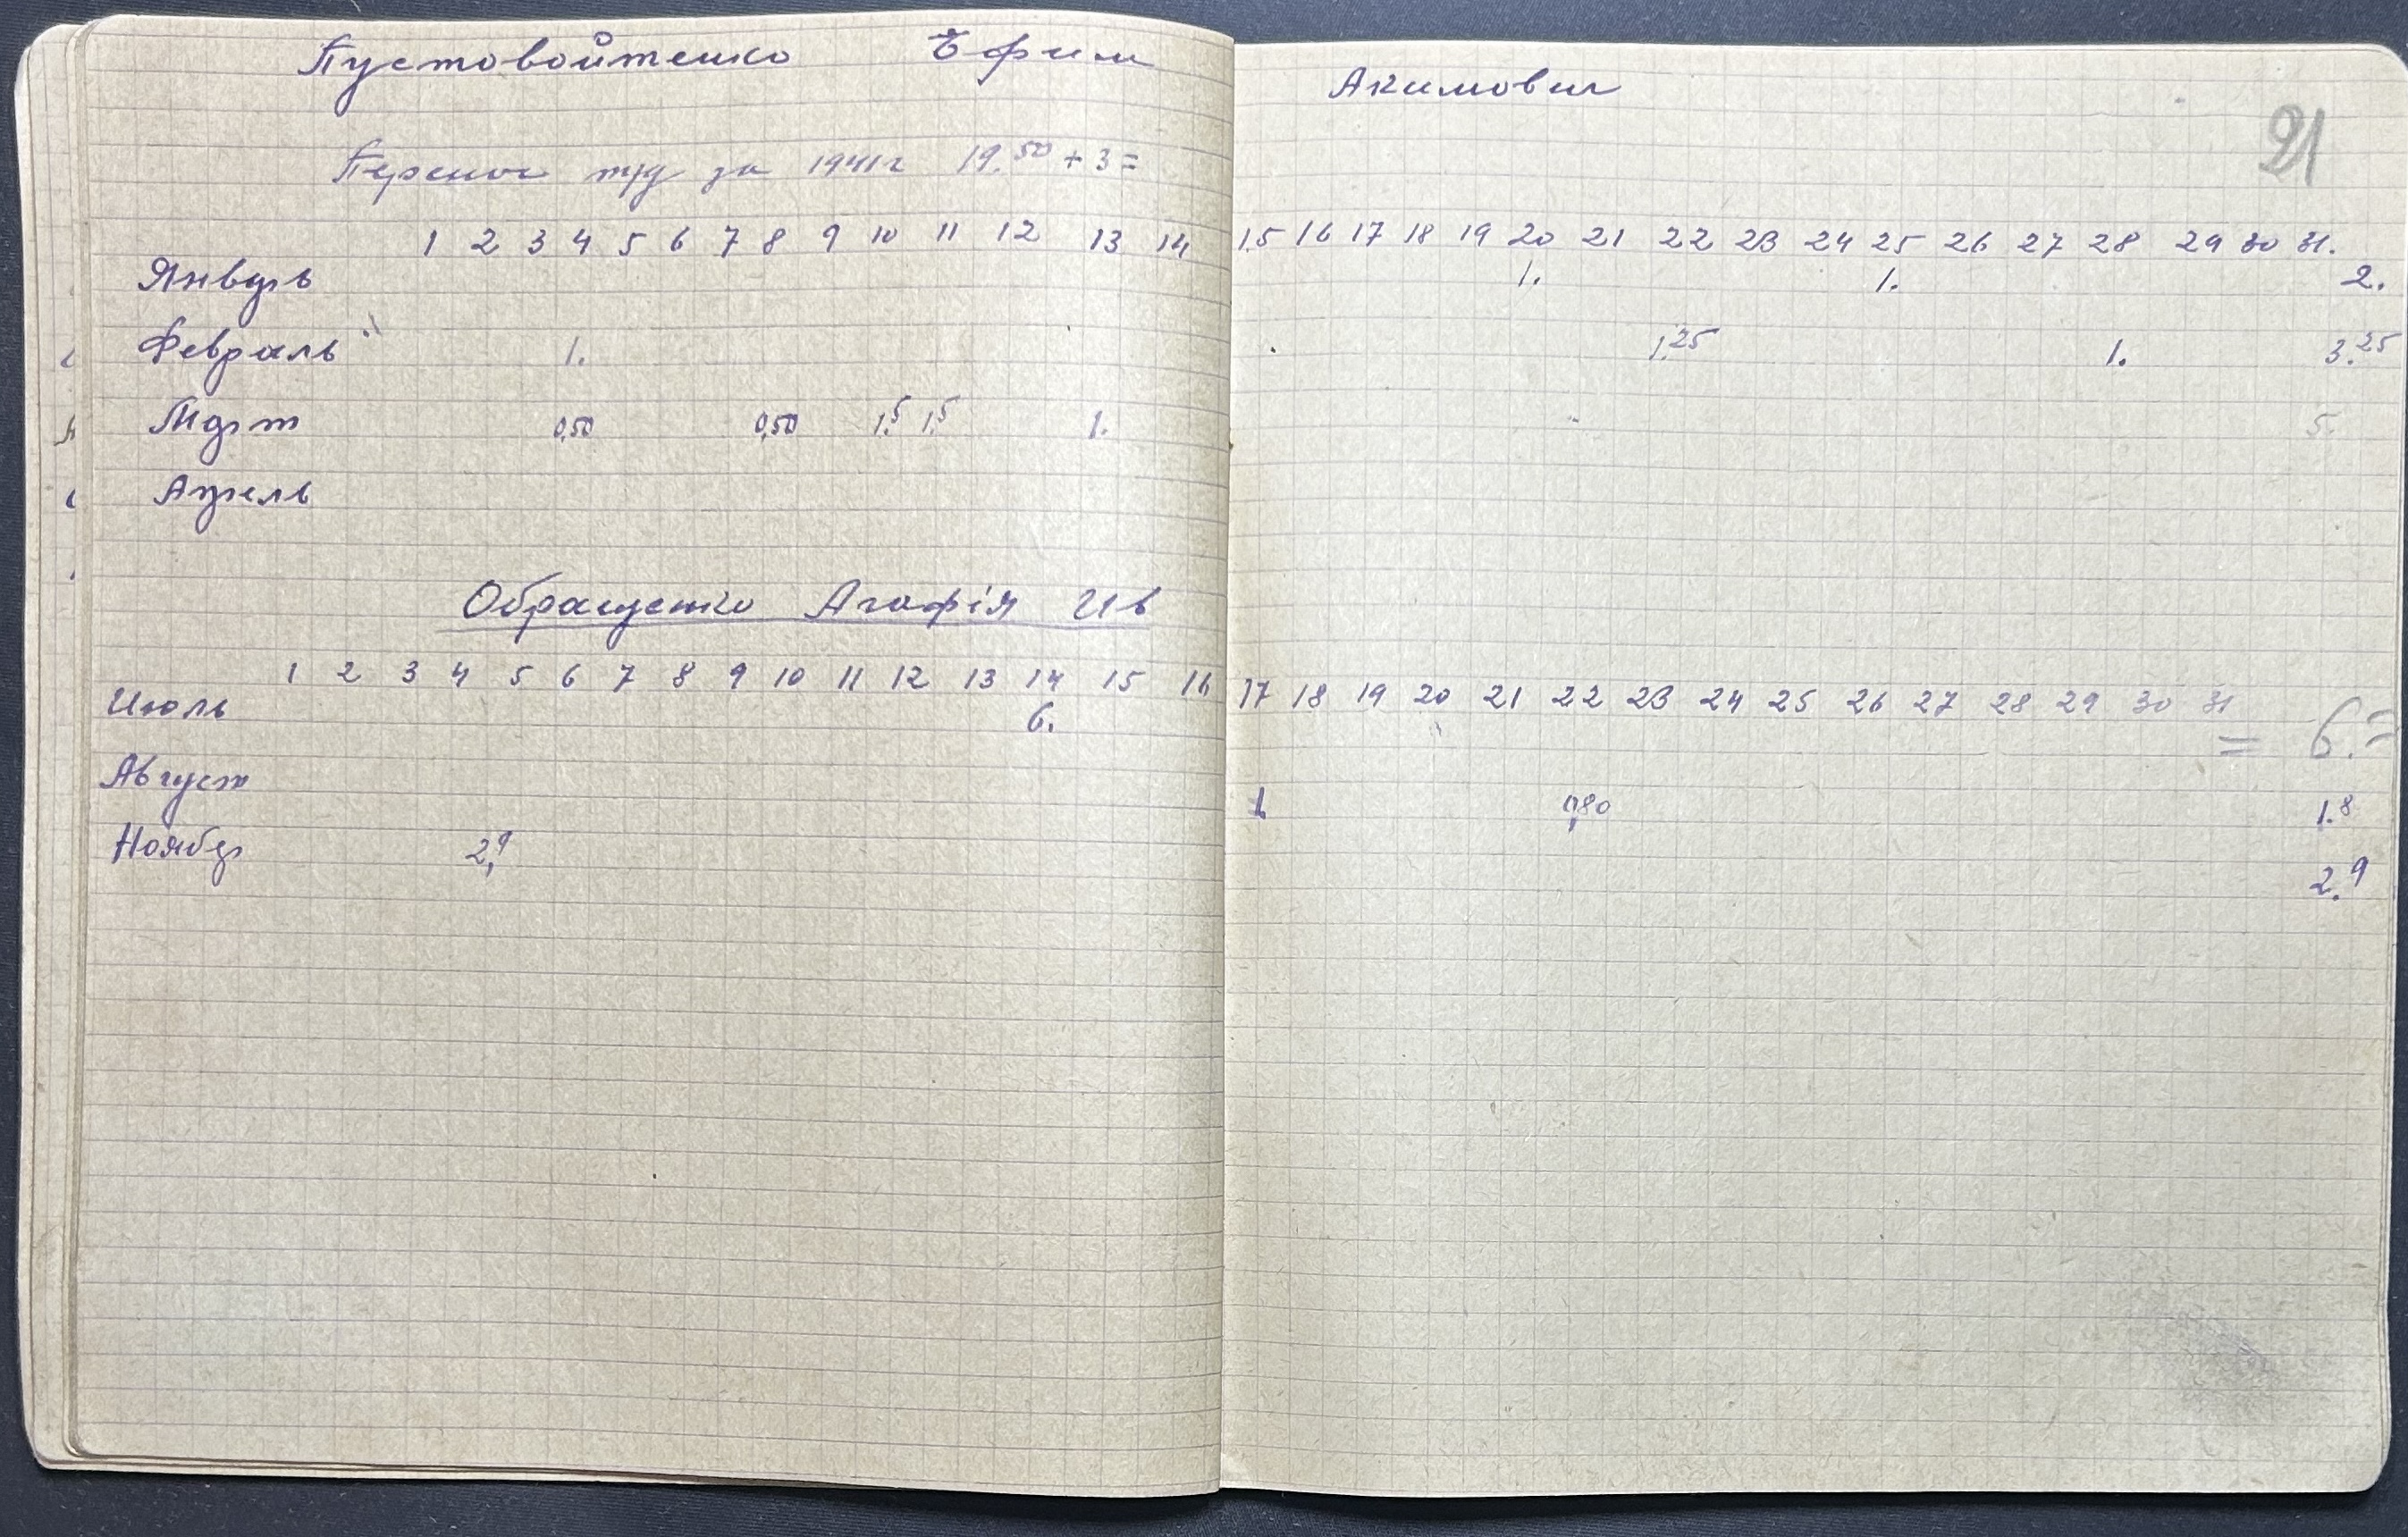 Пустовойтенко Ефим Акимович
21
Перенос труд за 1941г 19.50 + 3 =
1 2 3 4 5 6 7 8 9 10 11 12 13 14 15 16 17 18 19 20 21 22 23 24 25 26 27 28 29 30 31.
Январь 1. 1. 2.
Февраль 1. 1.25 1. 3.25
Март 0,50 0,50 1.5 1.5 1. 5.
Апрель
Агафія Ив
1 2 3 4 5 6 7 8 9 10 11 12 13 14 15 16 17 18 19 20 21 22 23 24 25 26 27 28 29 30 31
Июль 6. = 6. =
Август 1 0,80 1.8
Ноябр 2,9 2.9